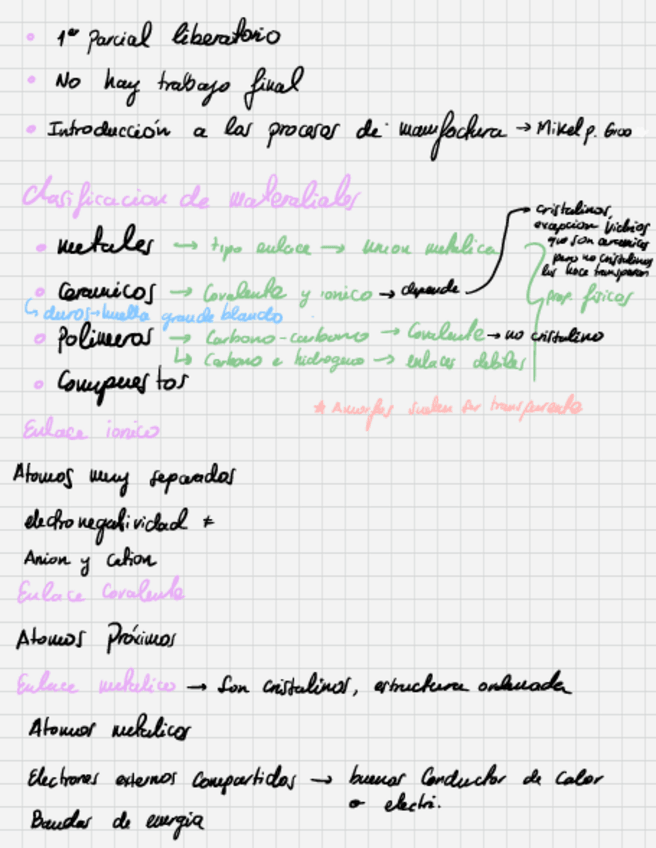 • 1er Parcial liberatorio
• No hay trabajo final
• Introducción a los procesos de manufactura → Mikel p. Groo
Clasificacion de materialiales
• metales → tipo enlace → union metalica
• Ceramicos → Covalente y ionico → depende → cristalinos,
excepcion vidrios
que son amorfos
pero no cristalinos
los hace transparen
↳ duros → huella grande blando
prop. fisicas
• Polimeros → Carbono-carbono → Covalente → no cristalino
↳ Carbono e hidrogeno → enlaces debiles
• Compuestos
* Amorfos suelen ser transparente
Enlace ionico
Atomos muy separados
electronegatividad ≠
Anion y Cation
Enlace Covalente
Atomos Próximos
Enlace metalico → Son cristalinos, estructura ordenada
Atomos metalicos
Electrones externos Compartidos → buenos Conductor de Calor
o electri.
Bandas de energia